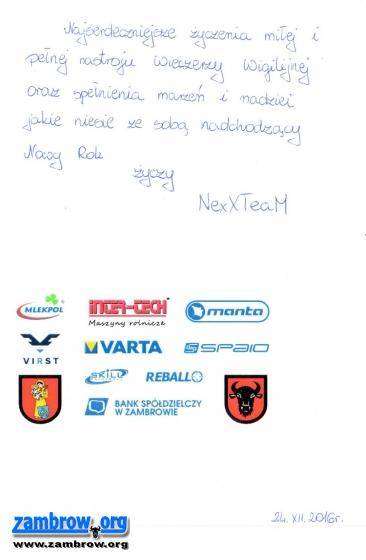 Najserdeczniejsze życzenia miłej i
pełnej nastroju Wieczerzy Wigilijnej
oraz spełnienia marzeń i nadziei
jakie niesie ze sobą nadchodzący
Nowy Rok
życzy
NexXTeaM
MLEKPOL
INTER-TECH
Maszyny rolnicze
manta
VIRST
VARTA
SPAIO
SKILL
REBALLO
BANK SPÓŁDZIELCZY
W ZAMBROWIE
zambrow.org
www.zambrow.org
24.XII.2016r.